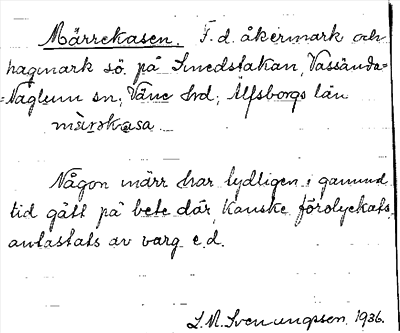 Märrekasen. F.d. åkermark och
hagmark sö. på Smedstakan, Vassända=
=Naglum sn; Väne hrd; Älfsborgs län
märskasa
Någon märr har tydligen i gammal
tid gått på bete där, kanske förolyckats,
antastats av varg e.d.
S.M. Svenungsson, 1936.